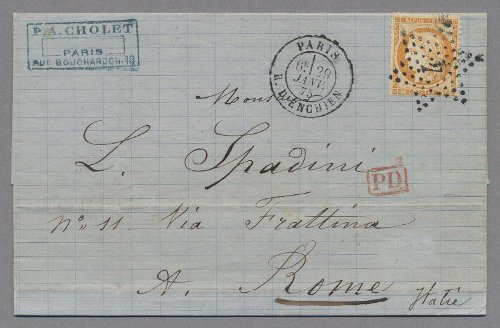 P.A. CHOLET
PARIS
RUE BOUCHARDON-18
PARIS
6E 29
JANV.
75
R. D'ENGHIEN
REPUB. FRANC.
Mons
L. Spadini
PD
No 11. Via Frattina
A. Rome
Italie